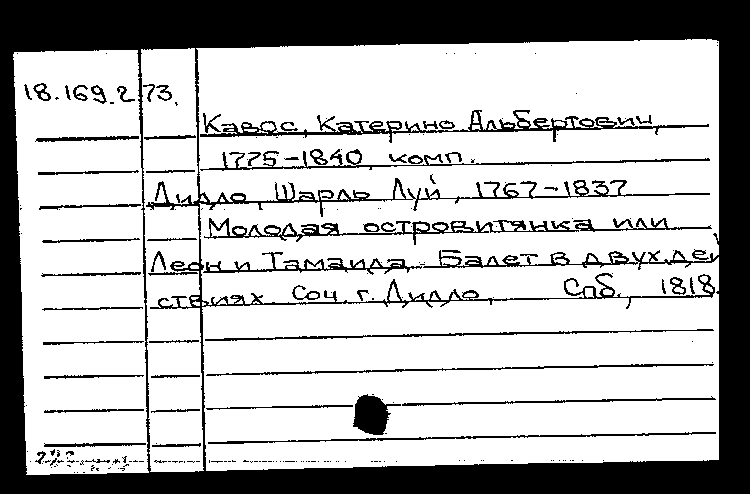 18.169.2.73.
Кавос, Катерино Альбертович,
1775-1840, комп.
Дидло, Шарль Луи, 1767-1837
Молодая островитянка или
Леон и Тамаида. Балет в двух дей
ствиях. Соч. г. Дидло, Спб., 1818.